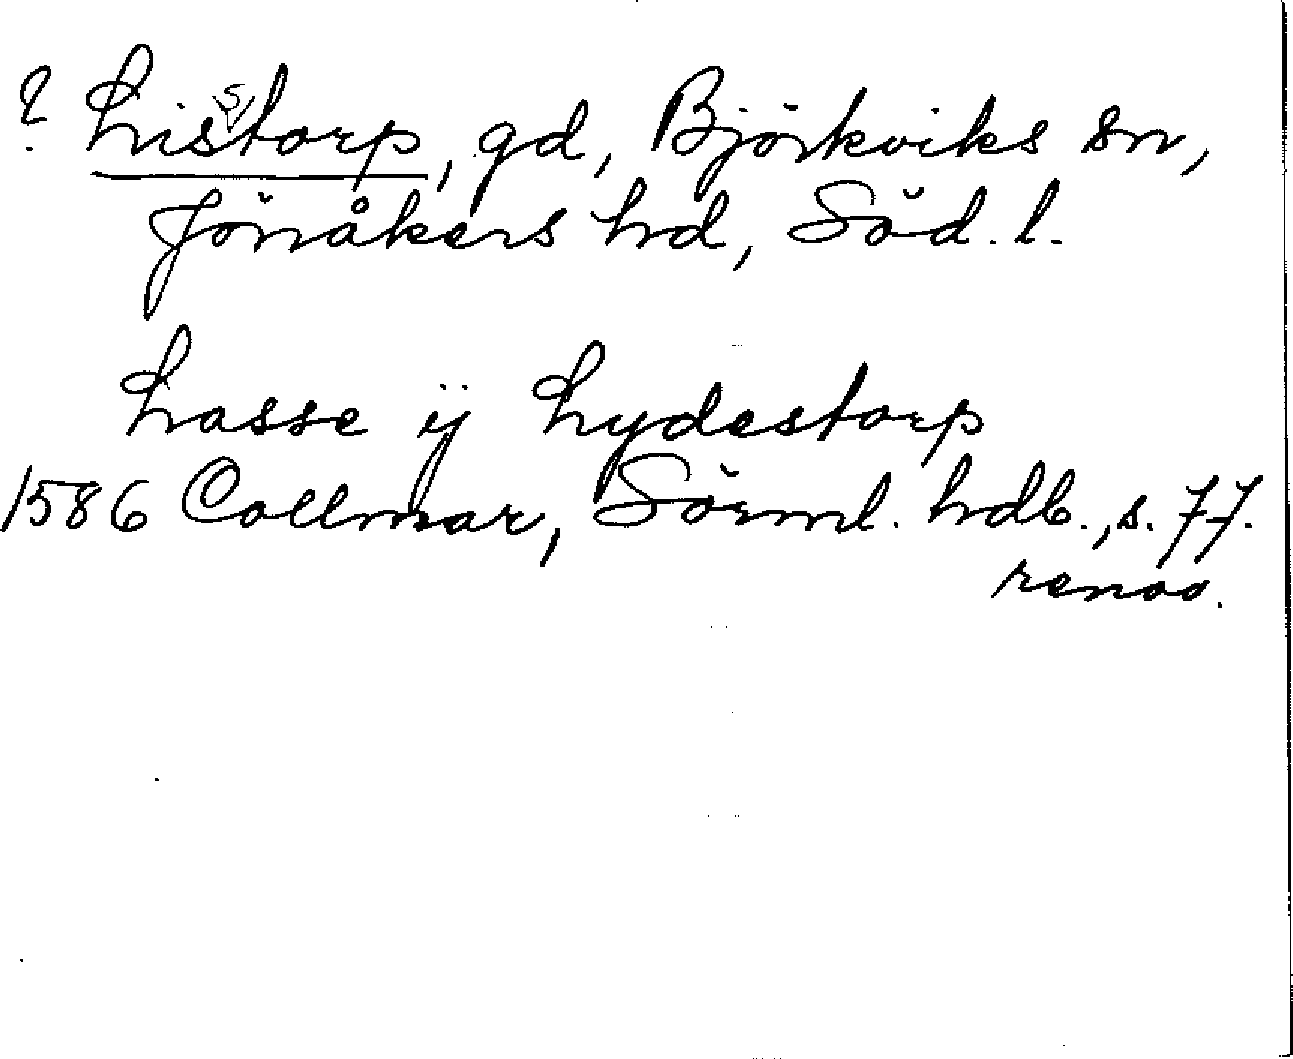 ? Lisstorp, gd, Björkviks sn,
Jönåkers hd, Söd. l.
Lasse ÿ Lydestorp
1586 Collmar, Sörml. hdb., s. 77.
renov.